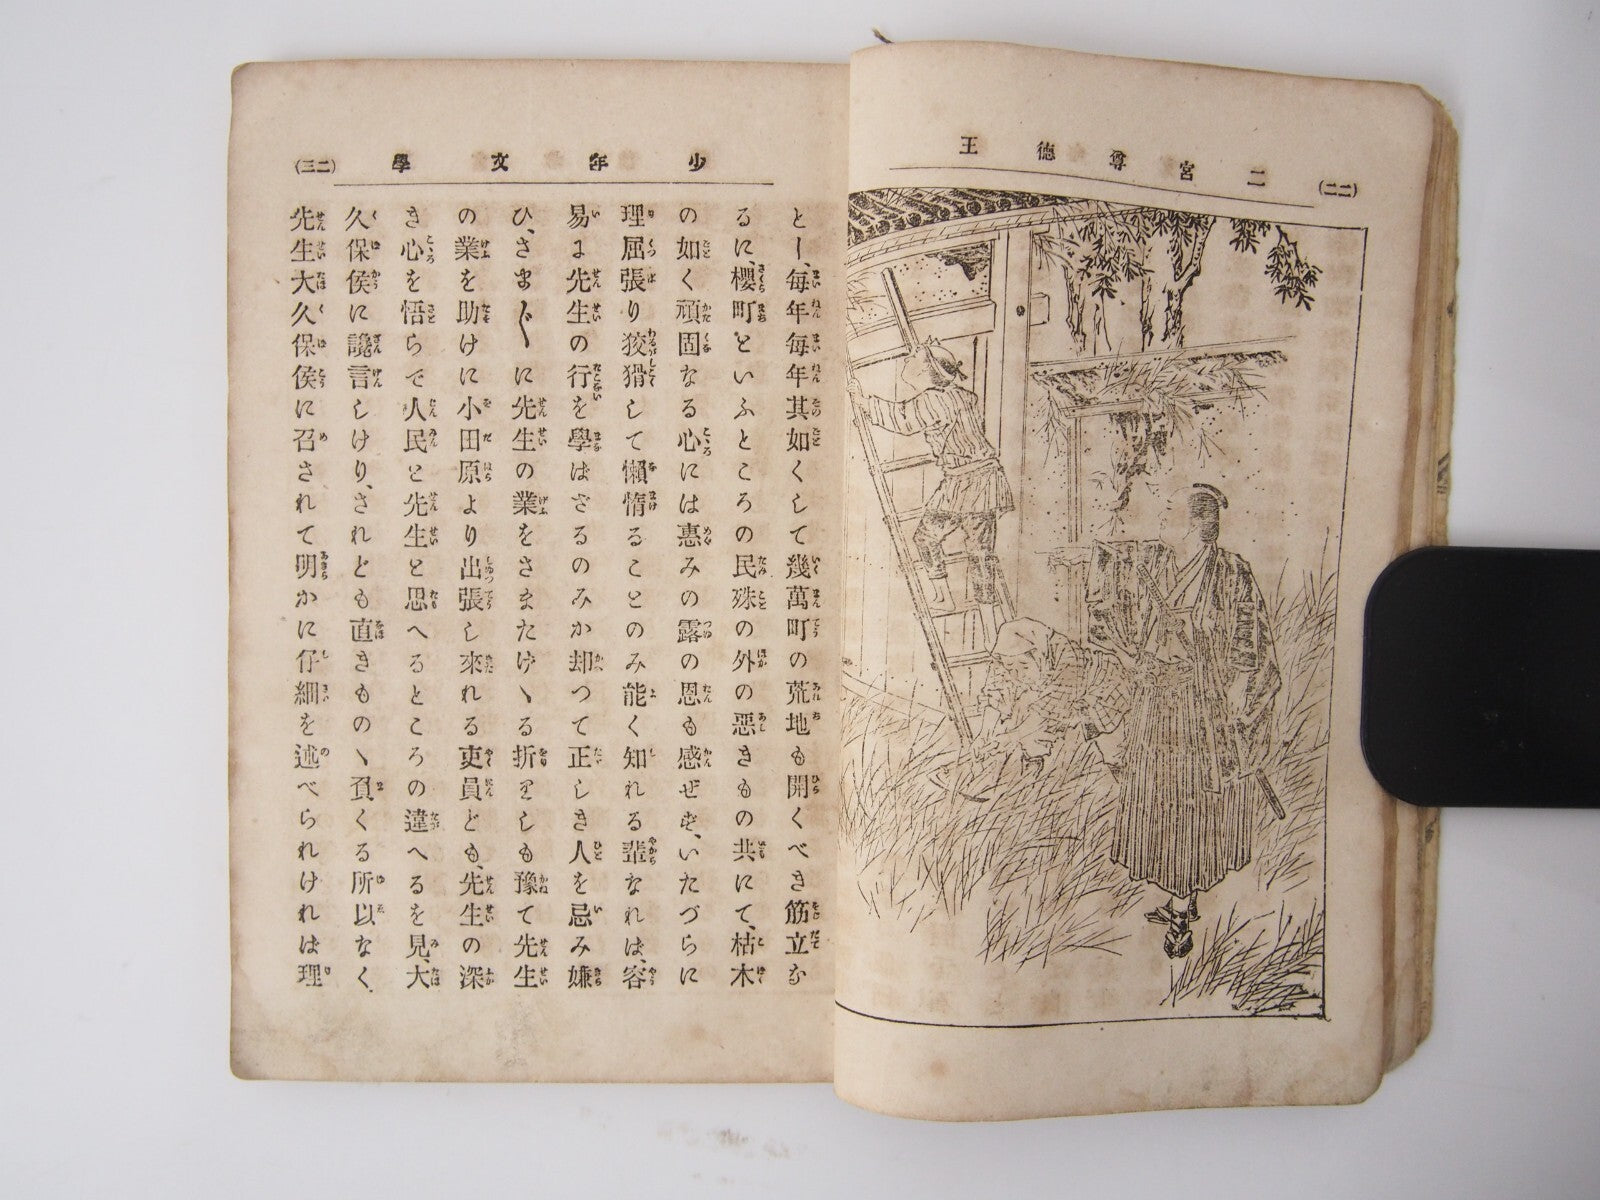 (二二)
二宮尊徳王
少年文學
(二三)
とし、毎年毎年其如くして幾萬町の荒地も開くべき筋立な
るに、櫻町といふところの民殊の外の惡きもの共にて、枯木
の如く頑固なる心には惠みの露の恩も感ぜず、いたづらに
理屈張り狡猾して懶惰ることのみ能く知れる輩なれは、容
易に先生の行を學はざるのみか却つて正しき人を忌み嫌
ひ、さま〴〵に先生の業をさまたげゝる折をしも豫て先生
の業を助けに小田原より出張し來れる吏員ども、先生の深
き心を悟らで人民と先生と思へるところの違へるを見、大
久保侯に讒言しけり、されども直きものゝ負くる所以なく、
先生大久保侯に召されて明かに仔細を述べられけれは理